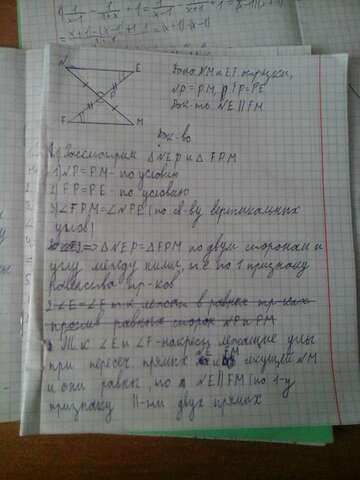 1/x-1 - 1/x+1 + 1 =
N E
F M
Дано NM и EF отрезки,
NP = PM, FP = PE
Док-ть NE || FM
Док-во
Рассмотрим △ NEP и △ FPM
1) NP = PM - по условию
2) FP = PE - по условию
3) ∠FPM = ∠NPE (по св-ву вертикальных
углов)
=> △NEP = △FPM по двум сторонам и
углу между ними, и.е по 1 признаку
равенства тр-ков
2 ∠E = ∠F т.к лежат в равных тр-ках
против равных сторон NP и PM
Т.к ∠E и ∠F - накрест лежащие углы
при пересеч. прямых NE и FM секущей NM
и они равны, то NE || FM (по 1-у
признаку ||-ти двух прямых